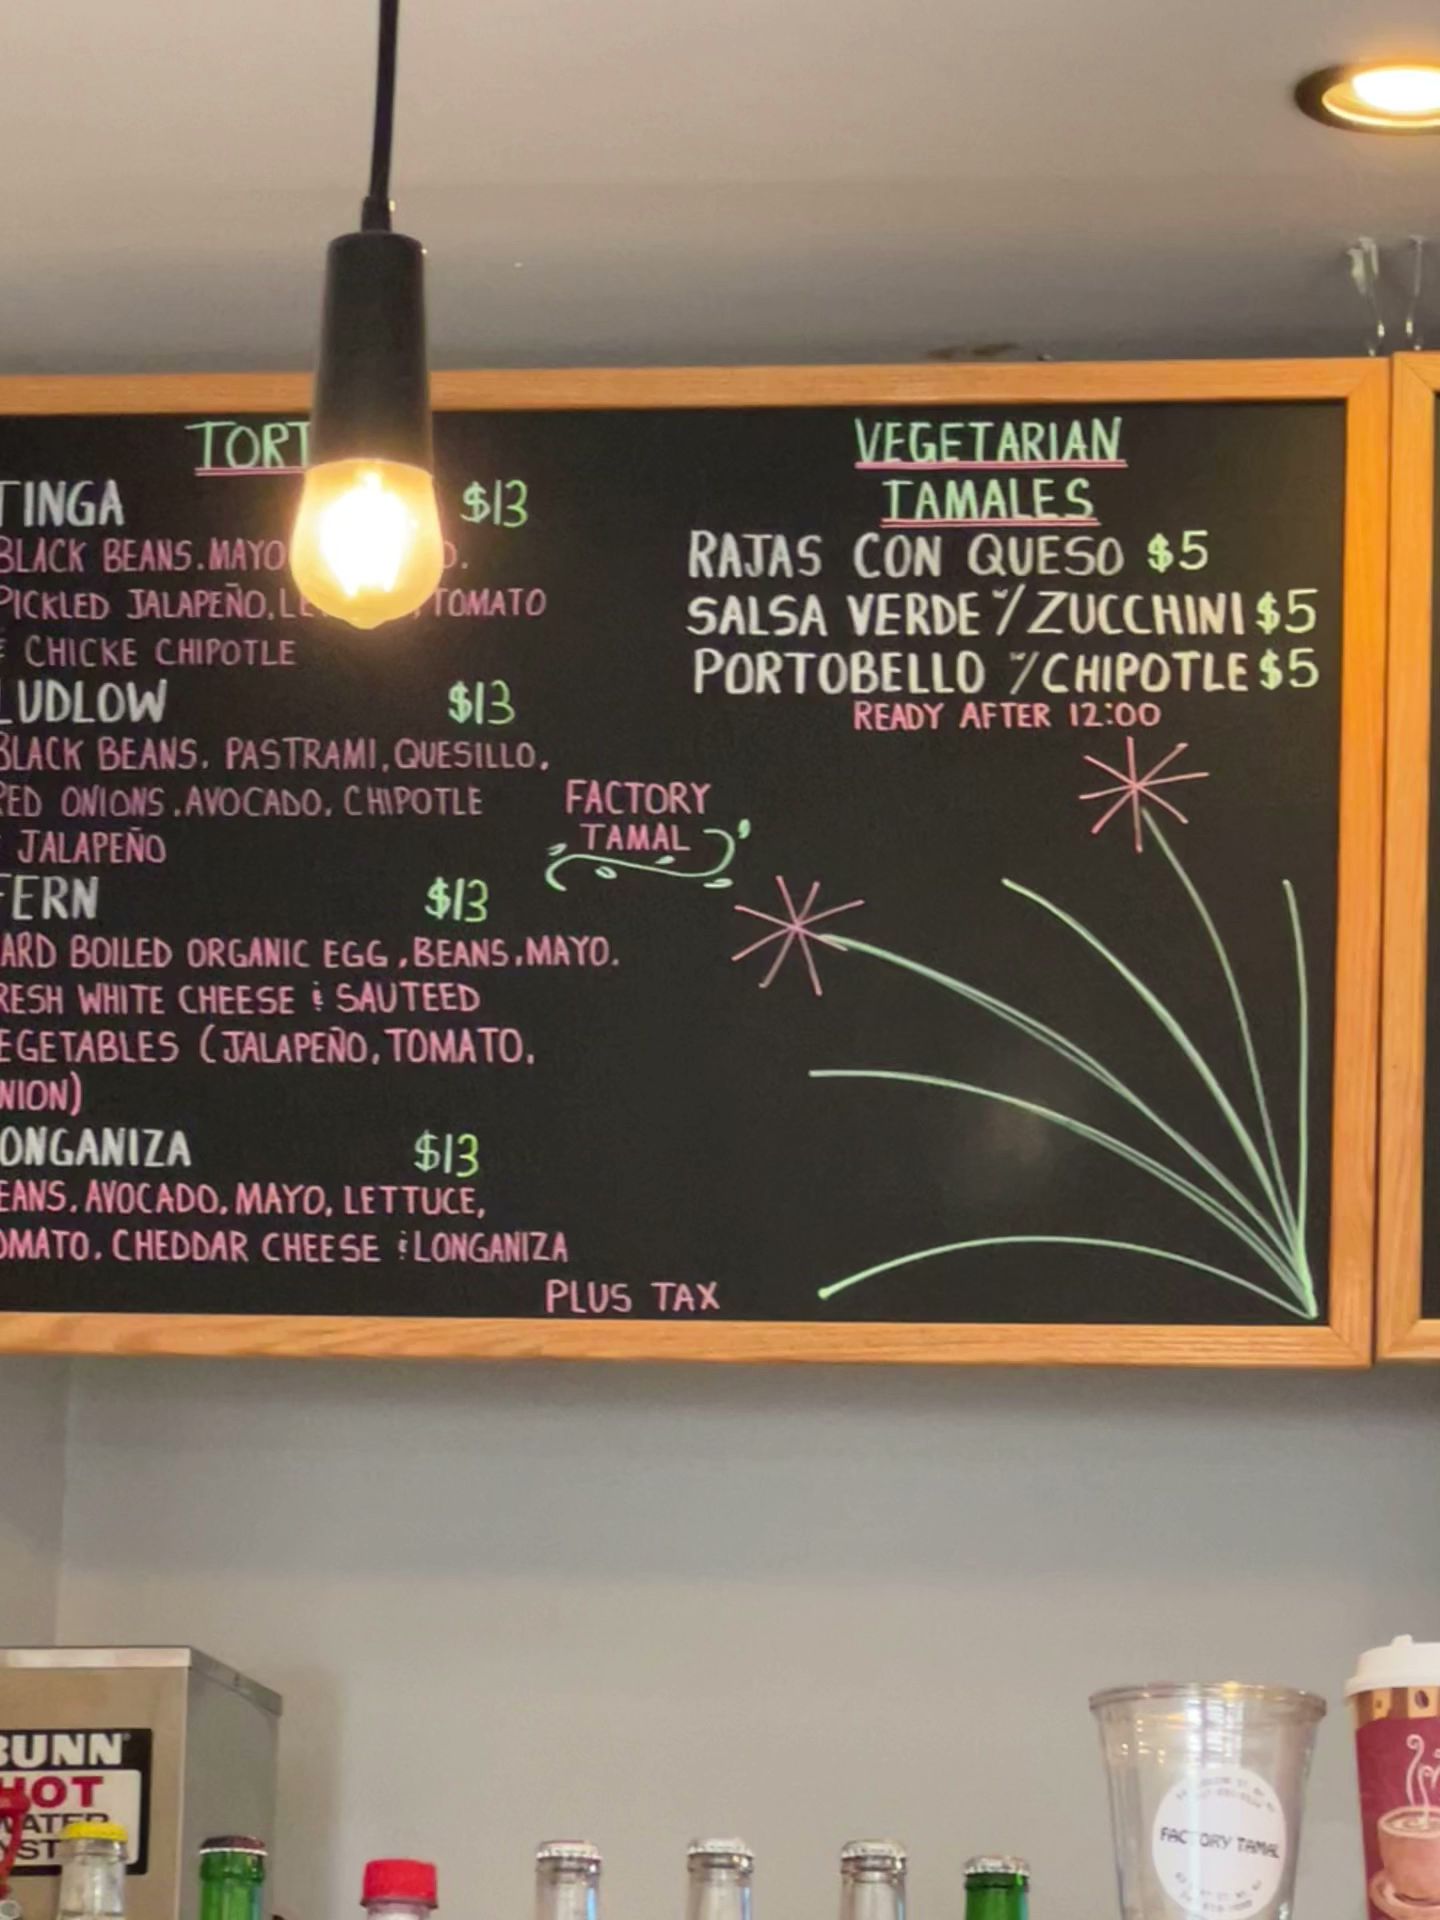 TORT
TINGA $13
BLACK BEANS. MAYO
PICKLED JALAPEÑO, TOMATO
& CHICKE CHIPOTLE
LUDLOW $13
BLACK BEANS. PASTRAMI, QUESILLO,
RED ONIONS. AVOCADO. CHIPOTLE
JALAPEÑO
FERN $13
ARD BOILED ORGANIC EGG, BEANS. MAYO.
RESH WHITE CHEESE & SAUTEED
EGETABLES (JALAPEÑO, TOMATO,
NION)
ONGANIZA $13
EANS. AVOCADO. MAYO, LETTUCE,
OMATO. CHEDDAR CHEESE & LONGANIZA
PLUS TAX
FACTORY
TAMAL
VEGETARIAN
TAMALES
RAJAS CON QUESO $5
SALSA VERDE W/ZUCCHINI $5
PORTOBELLO W/CHIPOTLE $5
READY AFTER 12:00
BUNN
HOT
WATER
FACTORY TAMAL